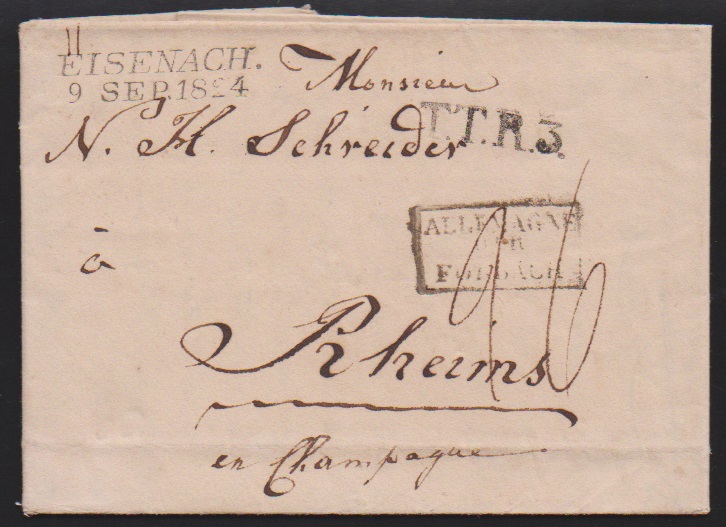 EISENACH.
9 SEP. 1824
Monsieur
N. H. Schreider
T.T.R.3.
ALLEMAGNE
PAR
FORBACH
à
Rheims
en Champagne